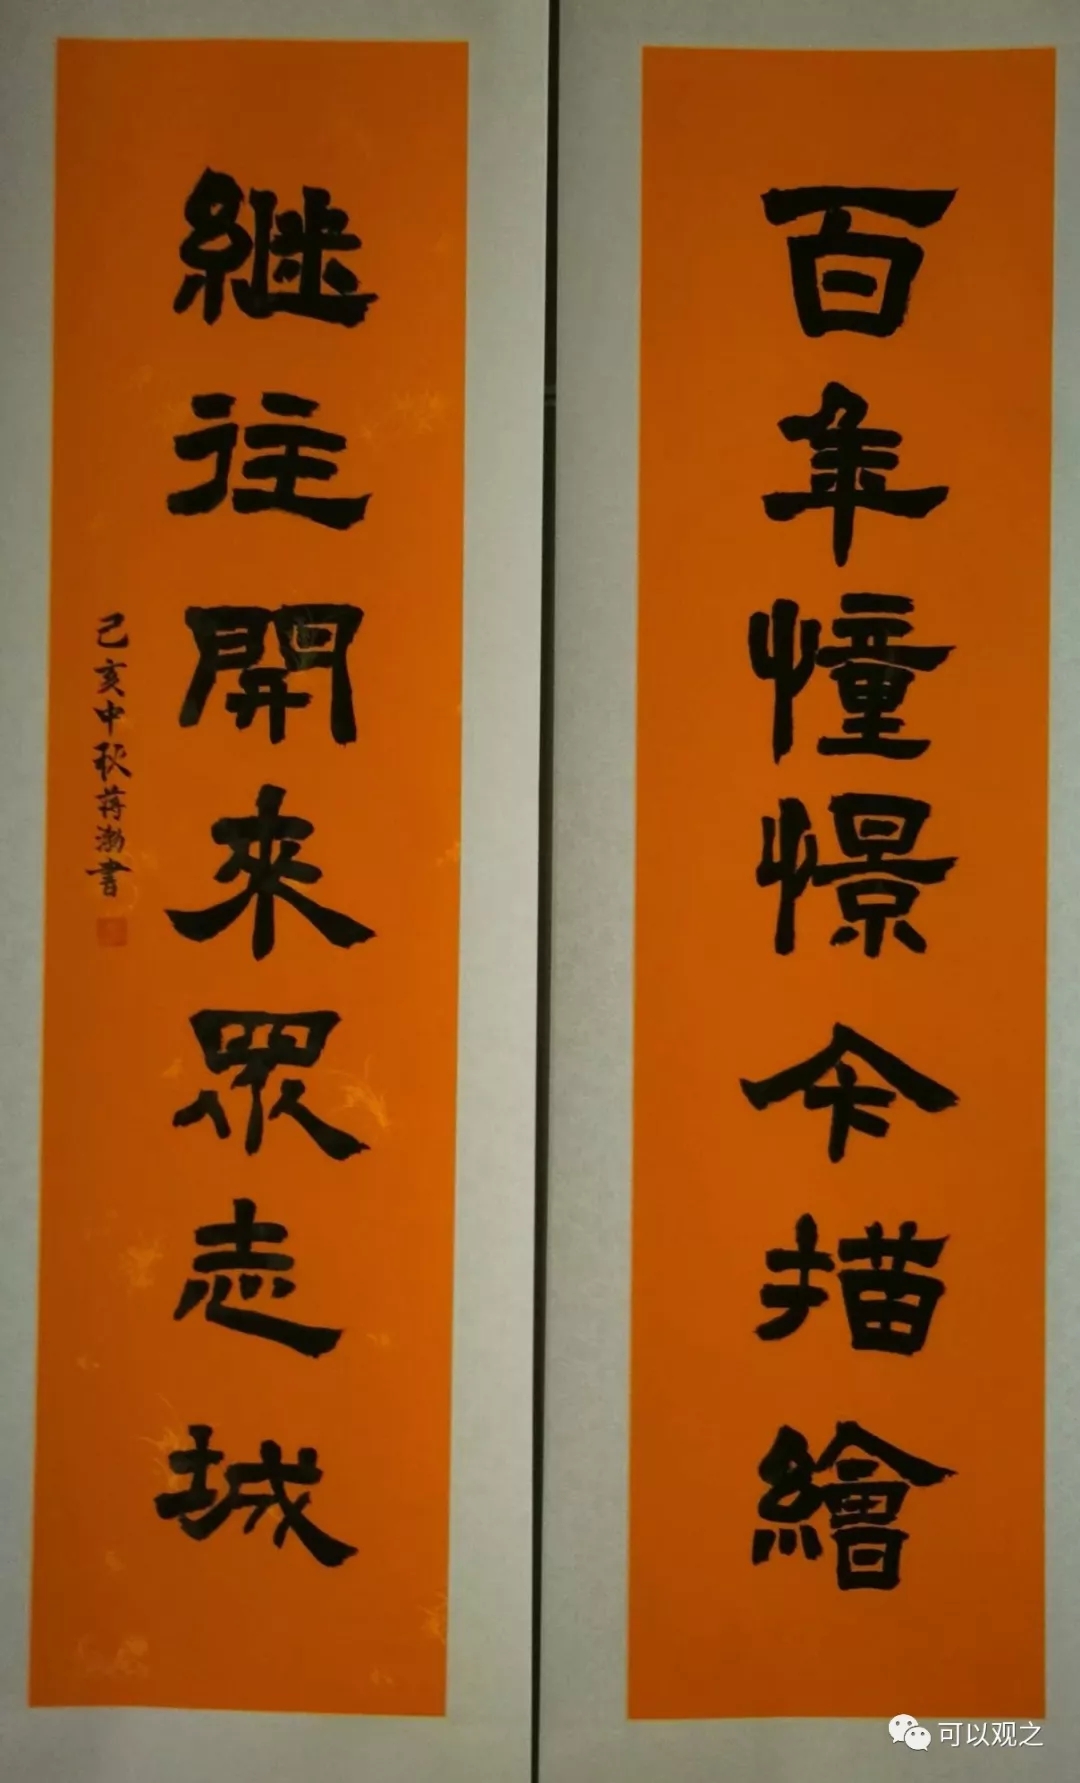 百年憧憬今描繪
継往開來眾志城
己亥中秋蒋渤書
可以观之